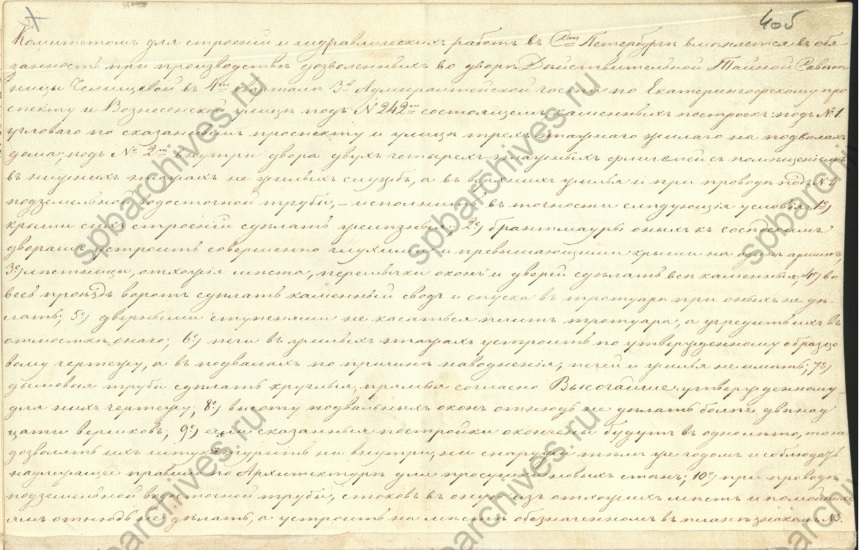 405
Комитетомъ для строеній и гидравлическихъ работъ въ Петербургѣ вмѣняется въ обя-
занность при производствѣ дозволенныхъ во дворѣ Дѣйствительной Тайной Совѣт-
ницы въ 4мъ кварталѣ 3й Адмиралтейской части по Екатерингофскому про-
спекту и Вознесенской улицѣ подъ №242мъ состоящемъ каменныхъ построекъ: подъ №1
угловаго по сказаннымъ проспекту и улицѣ трехъ этажнаго жилаго на подвалахъ
дома; подъ №2мъ внутри двора двухъ четырехъ этажныхъ флигелей съ помѣщеніемъ
въ нижнихъ этажахъ не жилыхъ службъ, а въ верхнихъ жилья и при проводѣ подъ №3
подземельной водосточной трубы, – исполнить въ точности слѣдующія условія: 1е)
крыши сихъ строеній сдѣлать желѣзныя; 2е) брантмауры оныхъ къ сосѣдскимъ
дворамъ устроить совершенно глухими и превышающими крыши на аршинъ;
3е) лѣстницы, отхожія мѣста, перемычки оконъ и дверей сдѣлать всѣ каменныя; 4е) во
весь проѣздъ воротъ сдѣлать каменный сводъ и спуска въ тротуарѣ при оныхъ не дѣ-
лать; 5е) дверными ступенями не касаться плитъ тротуара, а учредить ихъ въ
отмосткѣ онаго; 6е) печи въ жилыхъ этажахъ устроить по утвержденному образцо-
вому чертежу, а въ подвалахъ по причинѣ наводненья, печей и жилья не имѣть; 7е)
дымовыя трубы сдѣлать круглыя, прямыя согласно Высочайше утвержденному
для нихъ чертежу; 8е) высоту подвальныхъ оконъ отнюдь не дѣлать болѣе двѣнад-
цати вершковъ; 9е) если сказанныя постройки окончены будутъ въ одно лѣто, то не
дозволять ихъ штукатурить ни внутри, ни снаружи тѣмъ же годомъ и соблюдать
наилучшее правило Архитектуры для просушки новыхъ стѣнъ; 10е) при проводѣ
подземельной водосточной трубы, стоковъ въ оную изъ отхожихъ мѣстъ и
отнюдь не дѣлать, а устроить на мѣстѣ обозначенномъ въ планѣ знакомъ №3.
spbarchives.ru
spbarchives.ru
spbarchives.ru
spbarchives.ru
spbarchives.ru
spbarchives.ru